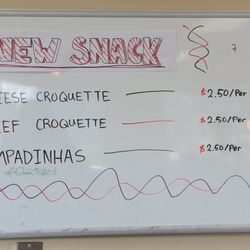 NEW SNACK
EESE CROQUETTE $2.50/Per
EEF CROQUETTE $2.50/Per
MPADINHAS $2.50/Per